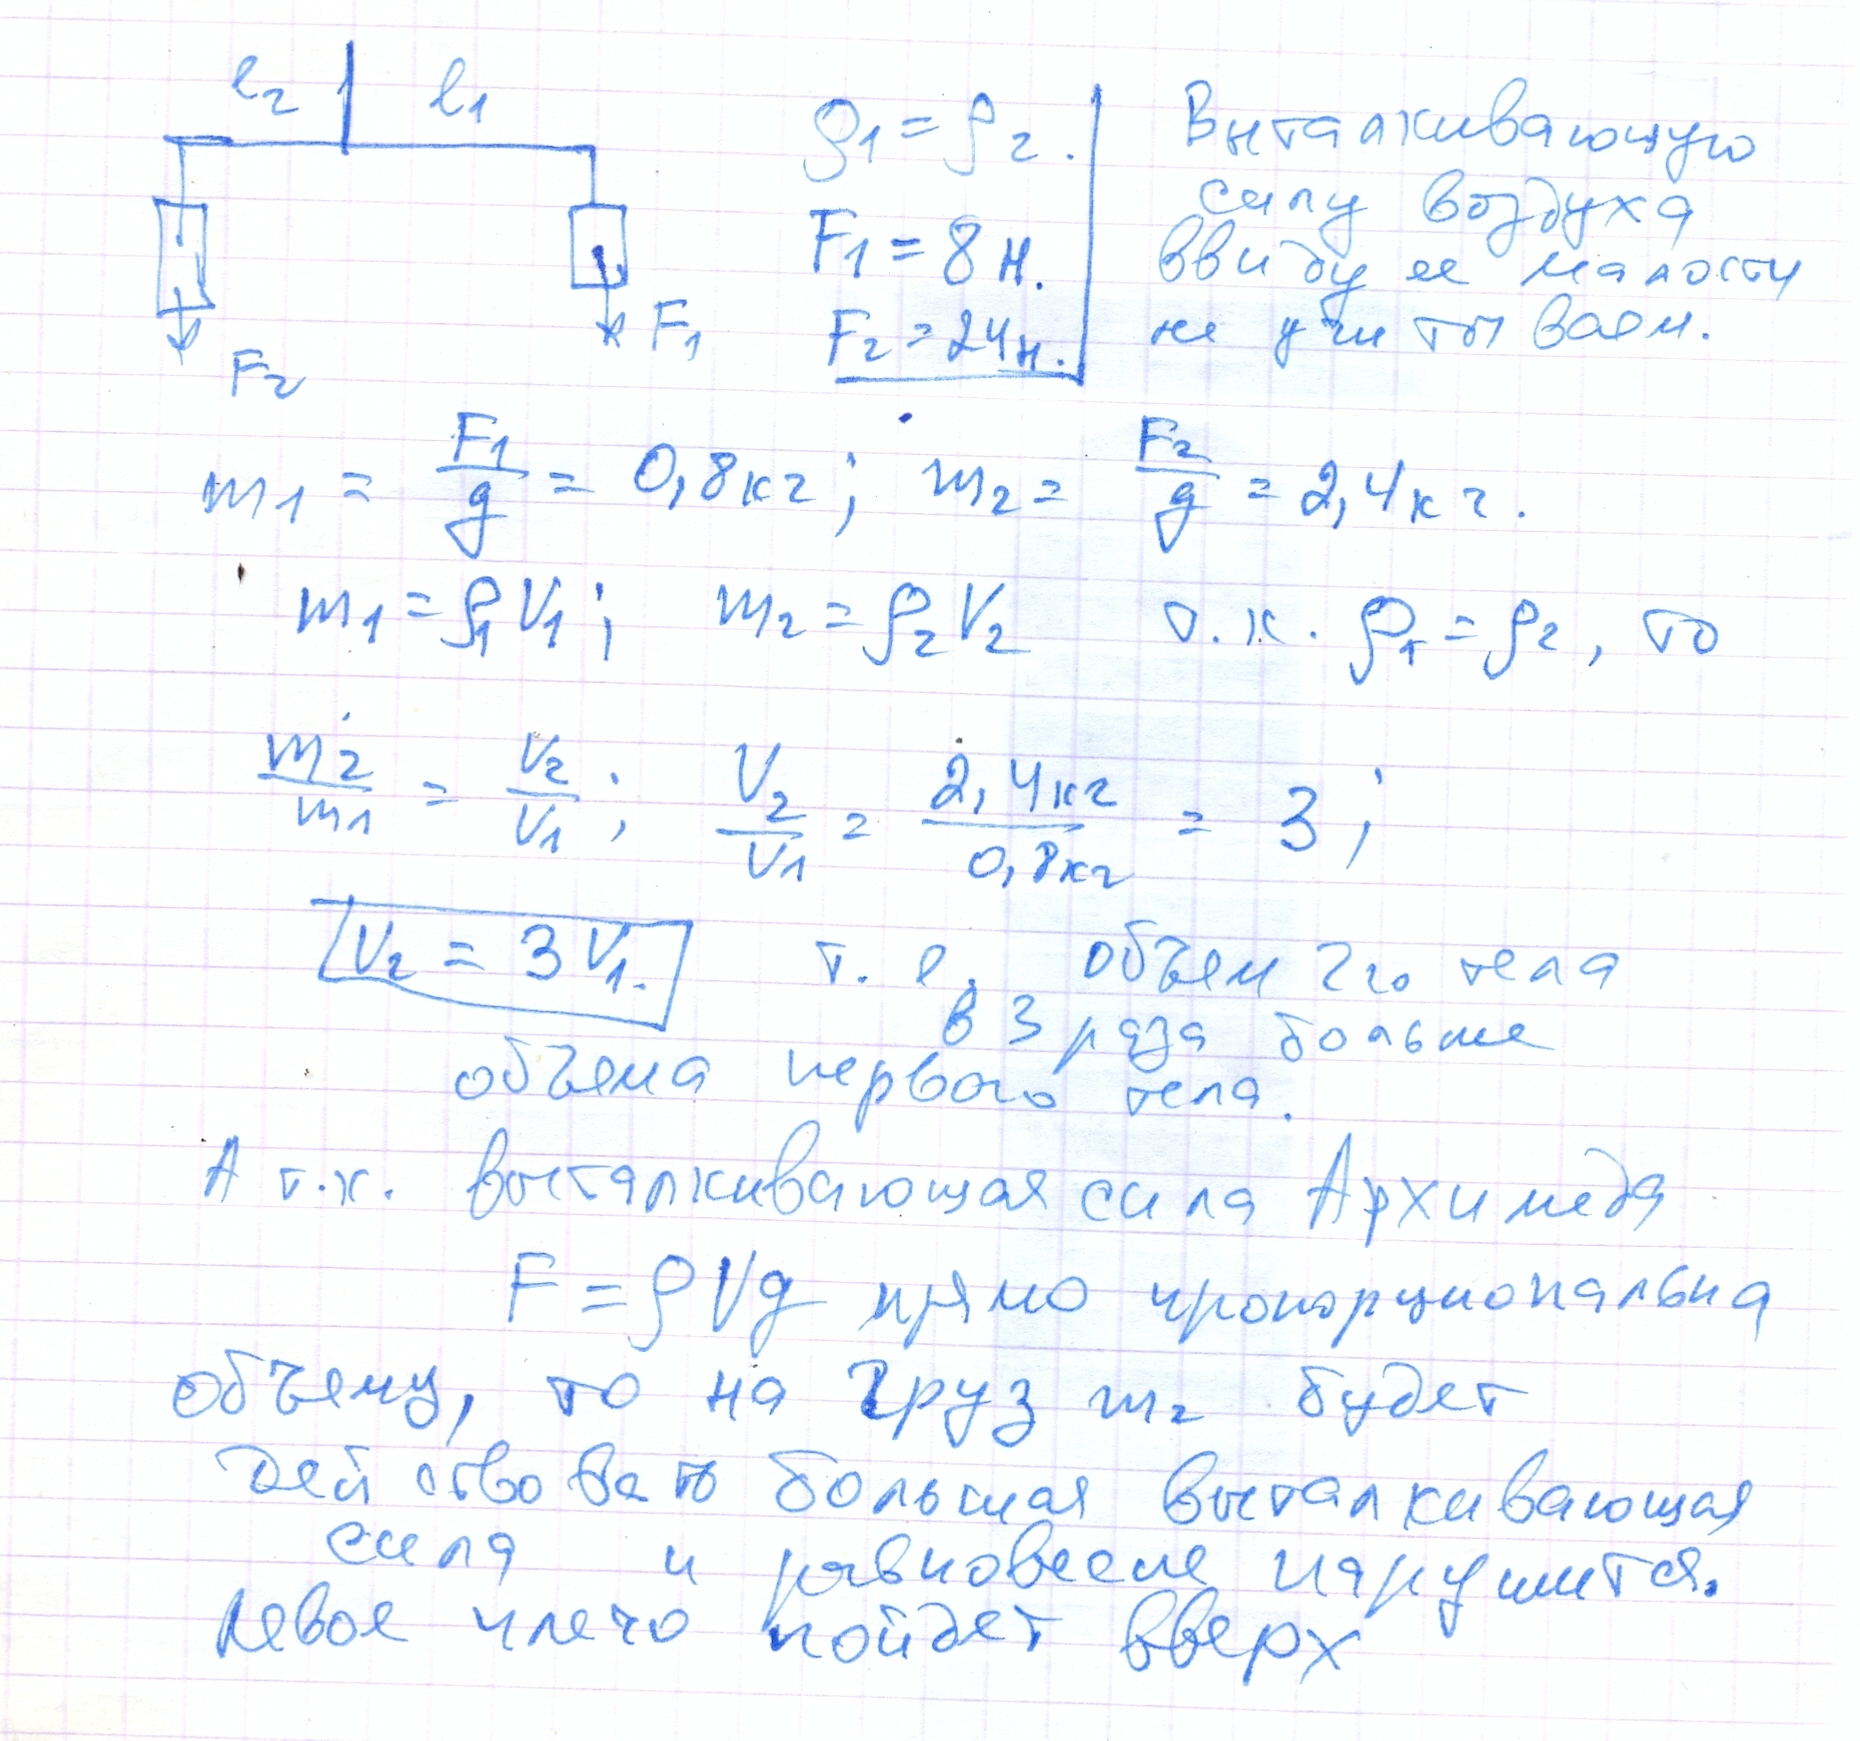 l₂ l₁
F₂
F₁
ρ₁ = ρ₂.
F₁ = 8 н.
F₂ = 24 н.
Выталкивающую
силу воздуха
ввиду ее малости
не учитываем.
m₁ = F₁/g = 0,8 кг; m₂ = F₂/g = 2,4 кг.
m₁ = ρ₁V₁; m₂ = ρ₂V₂ т.к. ρ₁ = ρ₂, то
m₂/m₁ = V₂/V₁; V₂/V₁ = 2,4 кг/0,8 кг = 3;
V₂ = 3V₁. т. е. объем 2го тела
в 3 раза больше
объема первого тела.
А т.к. выталкивающая сила Архимеда
F = ρVg прямо пропорциональна
объему, то на груз m₂ будет
действовать большая выталкивающая
сила и равновесие нарушится.
Левое плечо пойдет вверх